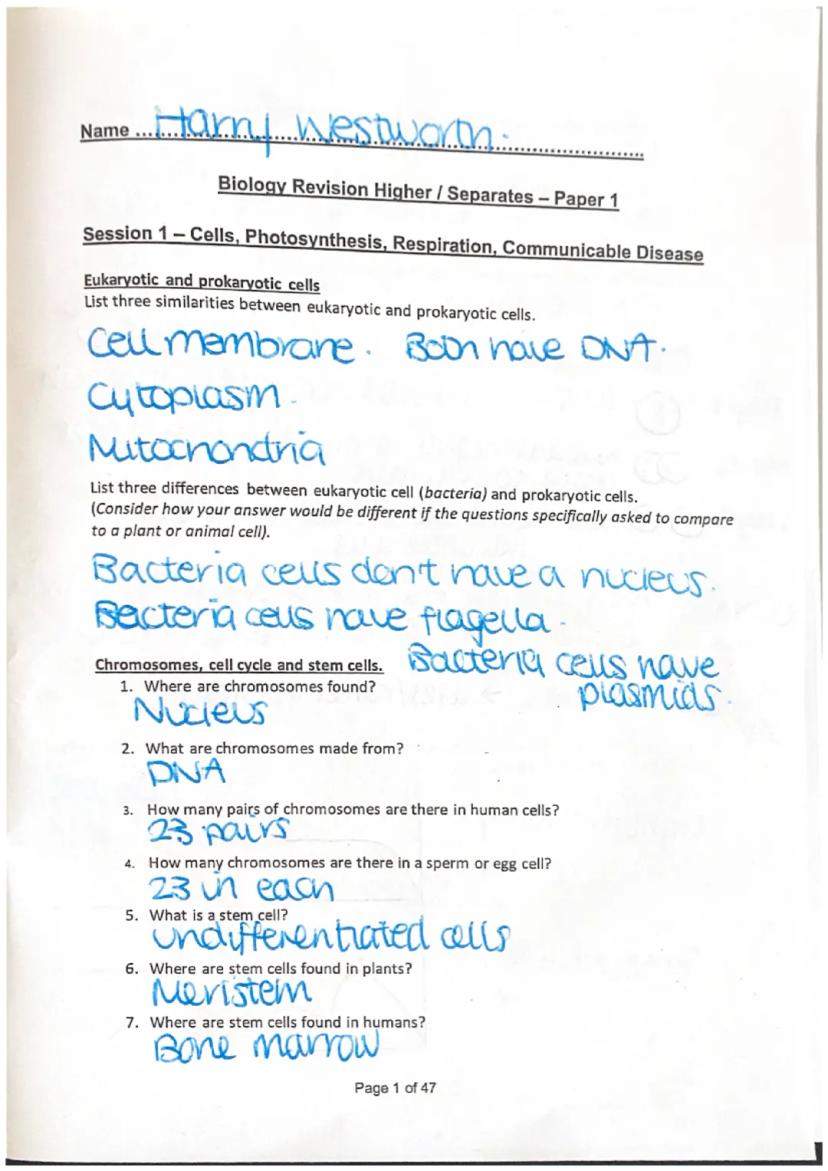 Name ........Harry Westworth.........
Biology Revision Higher / Separates – Paper 1
Session 1 – Cells, Photosynthesis, Respiration, Communicable Disease
Eukaryotic and prokaryotic cells
List three similarities between eukaryotic and prokaryotic cells.
Cell membrane. Both have DNA.
Cytoplasm.
Mitochondria
List three differences between eukaryotic cell (bacteria) and prokaryotic cells.
(Consider how your answer would be different if the questions specifically asked to compare
to a plant or animal cell).
Bacteria cells don't have a nucleus.
Bacteria cells have flagella.
Chromosomes, cell cycle and stem cells. Bacteria cells have
plasmids.
1. Where are chromosomes found?
Nucleus
2. What are chromosomes made from?
DNA
3. How many pairs of chromosomes are there in human cells?
23 pairs
4. How many chromosomes are there in a sperm or egg cell?
23 in each
5. What is a stem cell?
undifferentiated cells
6. Where are stem cells found in plants?
Meristem
7. Where are stem cells found in humans?
Bone marrow
Page 1 of 47